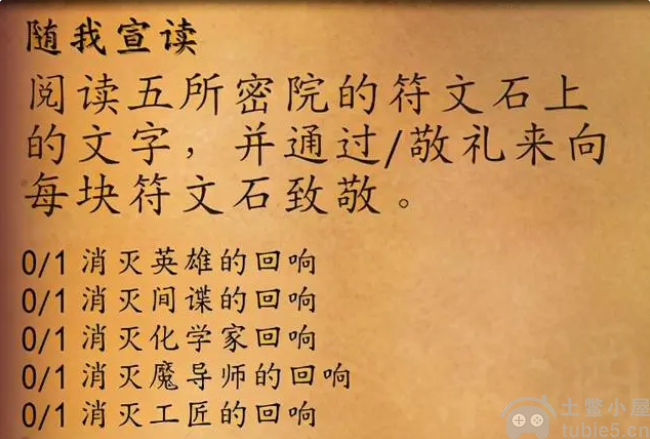 随我宣读
阅读五所密院的符文石上
的文字，并通过/敬礼来向
每块符文石致敬。
0/1 消灭英雄的回响
0/1 消灭间谍的回响
0/1 消灭化学家回响
0/1 消灭魔导师的回响
0/1 消灭工匠的回响
土鳖小屋
tubie5.cn